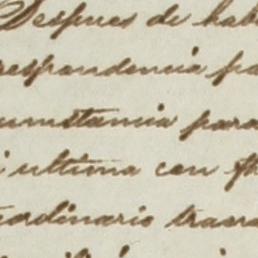 Despues de hab
respondencia pa
umstancia para
i ultima con fh
ordinario trasc